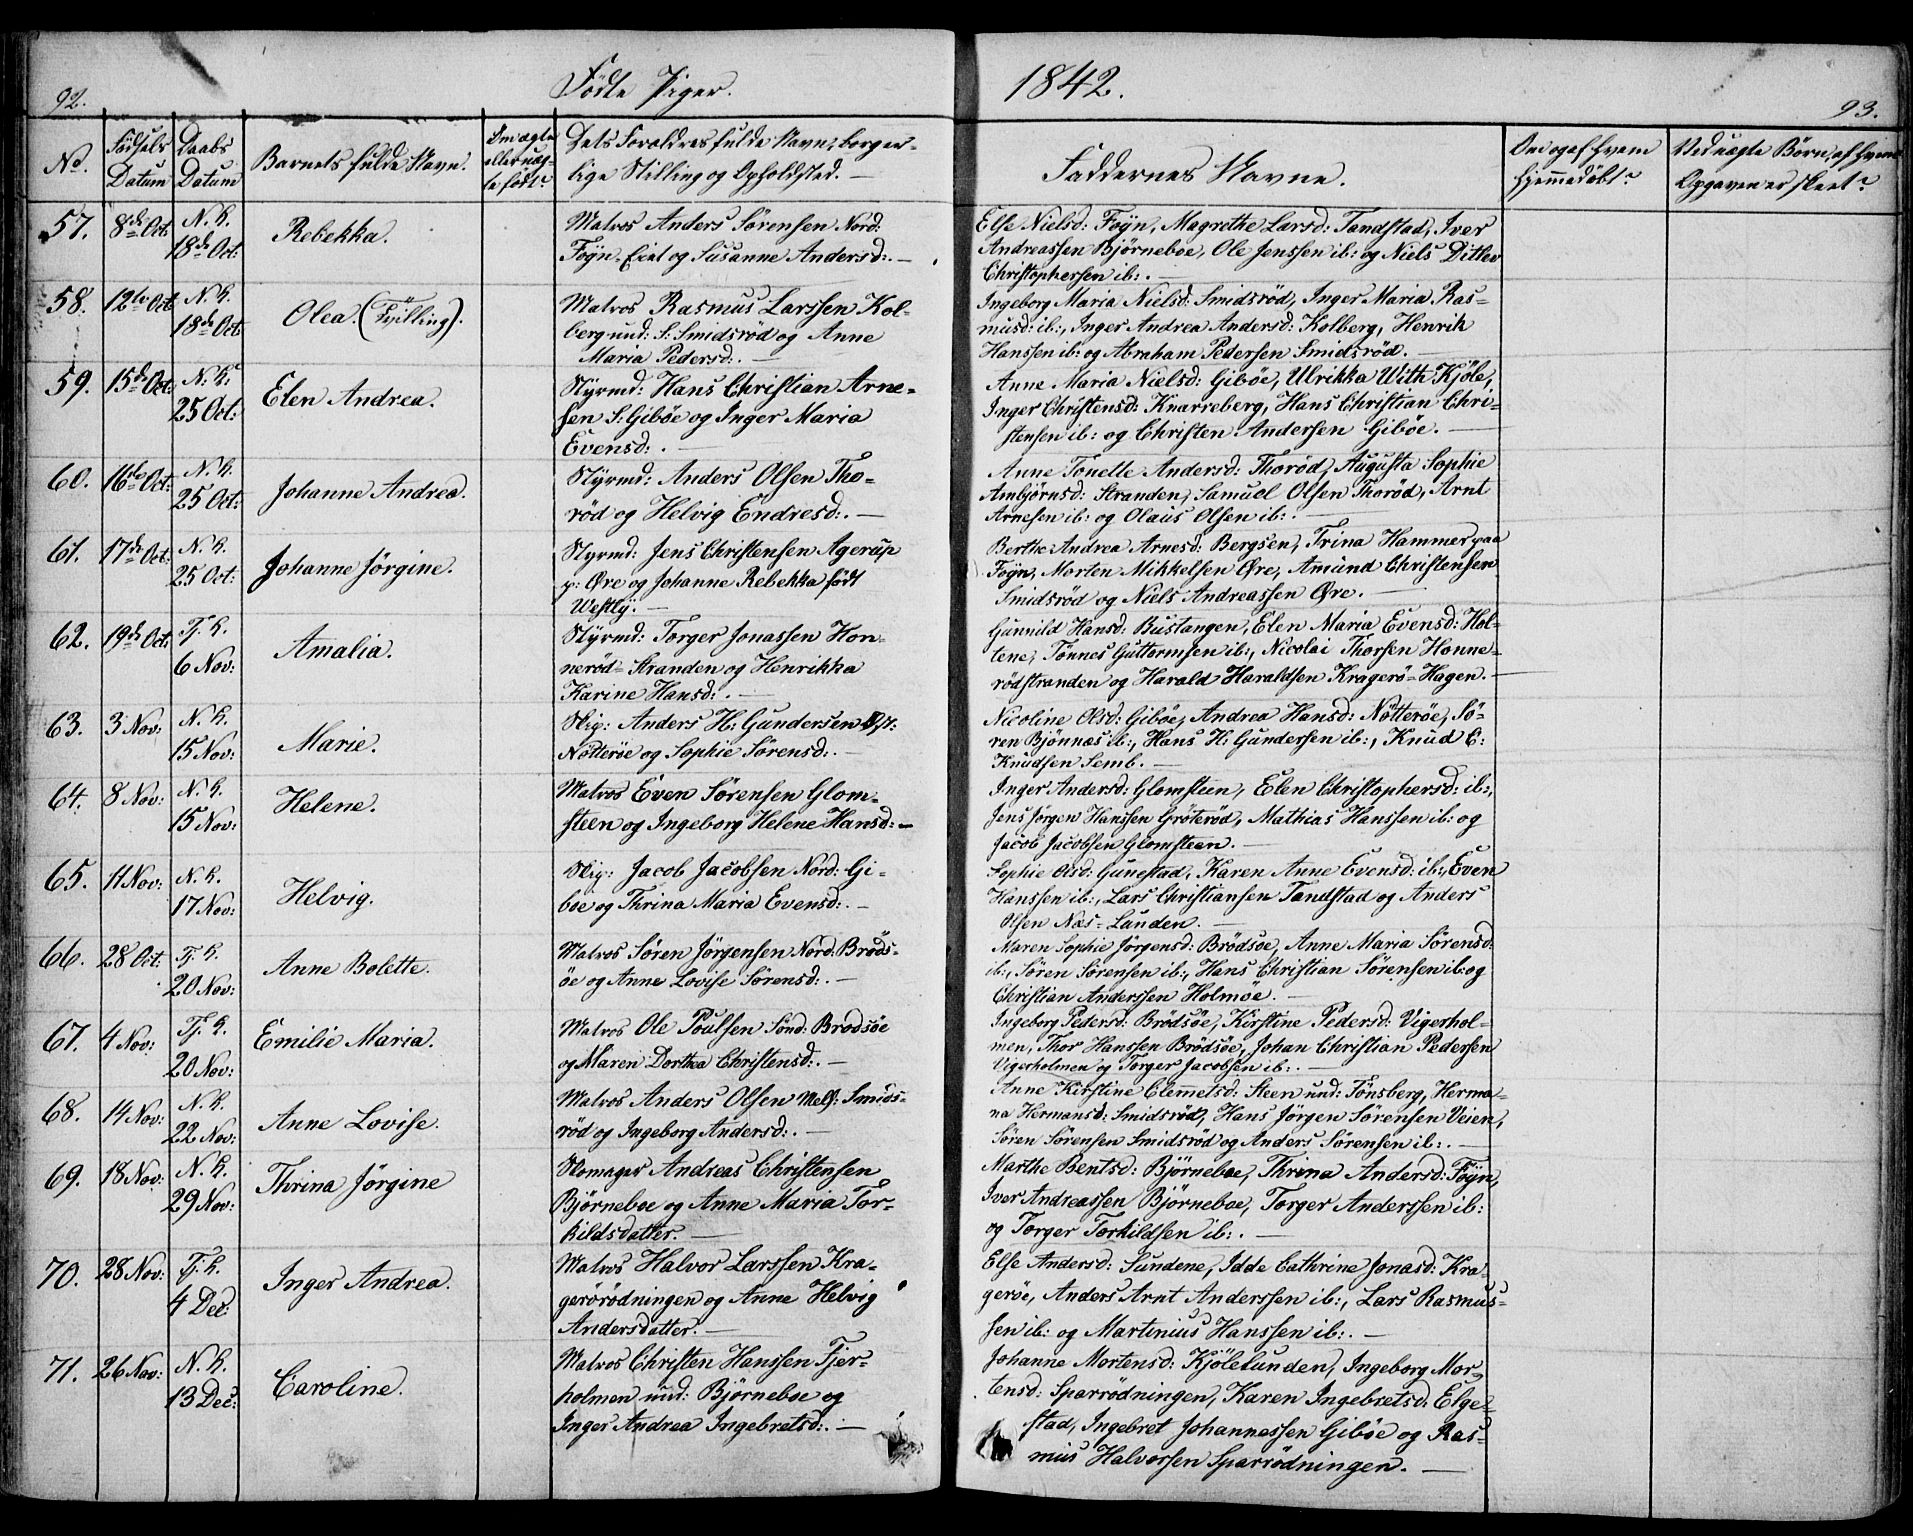 92.
Födte Piger.
1842.
93.
No.
Födsels
Datum
Daabs
Datum
Barnets fulde Navn.
Om ægte
eller uæg-
te født?
Dets Foreldres fulde Navn, borger-
lige Stilling og Opholdsted. —
Faddernes Navne.
Om og af hvem
hjemmedöbt?
Ved uægte Børn, af hvem
Opgaven er skeet?
57.
8de Oct:
N. K.
18de Oct:
Rebekka.
Matros Anders Sørensen Nord:
Föyn-Eiet og Susanne Andersd:. —
Else Nielsd: Föyn, Magrethe Larsd: Tandstad, Iver
Andreassen Bjørneboe, Ole Jenssen ib: og Niels Ditlev
Christophersen ib:. —
58.
12te Oct:
N. K.
18de Oct:
Olea. (Tvilling).
Matros Rasmus Larssen Kol-
berg und: S: Smidsröd og Anne
Maria Pedersd:. —
Ingeborg Maria Nielsd: Smidsröd, Inger Maria Ras-
musd: ib:, Inger Andrea Andersd: Kolberg, Henrik
Hanssen ib: og Abraham Pedersen Smidsröd. —
59.
15de Oct:
N. K.
25 Oct:
Elen Andrea.
Styrmd: Hans Christian Arne-
sen S: Giböe og Inger Maria
Evensd:. —
Anne Maria Nielsd: Giböe, Ulrikka With Kjöle,
Inger Christensd: Knarreberg, Hans Christian Chri-
stensen ib: og Christen Andersen Giböe. —
60.
16de Oct:
N. K.
25 Oct:
Johanne Andrea.
Styrmd: Anders Olsen Tho-
röd og Helvig Endresd:. —
Anne Tonette Andersd: Thoröd, Augusta Sophie
Ambjörnsd: Stranden, Samuel Olsen Thoröd, Arnt
Arnesen ib: og Olaus Olsen ib:.
61.
17de Oct:
N. K.
25 Oct:
Johanne Jörgine.
Styrmd: Jens Christensen Agerup
p: Øre og Johanne Rebekka födt
Westly. —
Berthe Andrea Arnesd: Bergsen, Trina Hammer paa
Föyn, Morten Mikkelsen Øre, Amund Christensen
Smidsröd og Niels Andreassen Øre. —
62.
19de Oct:
Tj. K.
6 Nov:
Amalia.
Styrmd: Torger Jonassen Hon-
neröd-Stranden og Henrikka
Karine Hansd:. —
Gunnild Hansd: Bustangen, Elen Maria Evensd: Hol-
tene, Tönnes Guttormsen ib:, Nicolai Thorsen Honne-
rödstranden og Harald Haraldsen Krageró-Hagen. —
63.
3 Nov:
N. K.
15 Nov:
Marie.
Skip: Anders H: Gundersen
Nötteröe og Sophie Sørensd:. —
Nicoline Olsd: Giböe, Andrea Hansd: Nötteröe, Sö-
ren Bjönnæs ib:, Hans H: Gundersen ib:, Knud C:
Knudsen Semb. —
64.
8 Nov:
N. K.
15 Nov:
Helene.
Matros Even Sörensen Glom-
steen og Ingeborg Helene Hansd: —
Inger Andersd: Glomsteen, Elen Christophersd: ib:,
Jens Jörgen Hanssen Gröteröd, Mathias Hanssen ib: og
Jacob Jacobsen Glomsteen. —
65.
11 Nov:
N. K.
17 Nov:
Helvig.
Skip: Jacob Jacobsen Nord: Gi-
böe og Thrina Maria Evensd:. —
Sophie Olsd: Gunestad, Karen Anne Evensd: ib:, Even
Hanssen ib:, Lars Christiansen Tandstad og Anders
Olsen Næs-Lunden. —
66.
28 Oct:
Tj. K.
20 Nov:
Anne Bolette.
Matros Sören Jörgensen Nord: Bröds-
öe og Anne Lovise Sörensd:. —
Maren Sophie Jörgensd: Brödsöe, Anne Maria Sörensd:
ib:, Sören Sörensen ib:, Hans Christian Sörensen ib: og
Christian Anderssen Holmöe. —
67.
4 Nov:
Tj. K.
20 Nov:
Emilie Maria.
Matros Ole Poulsen Sönd: Brodsöe
og Maren Dorthea Christensd:. —
Ingeborg Pedersd: Brödsöe, Kirstine Pedersd: Vigerhol-
men, Thor Hanssen Brödsöe, Johan Christian Pedersen
Vigerholmen og Torger Jacobsen ib:. —
68.
14 Nov:
N. K.
22 Nov:
Anne Lovise.
Matros Anders Olsen Mell: Smids-
röd og Ingeborg Andersd:. —
Anne Kirstine Clemetsd: Steen und: Tönsberg, Herma-
na Hermansd: Smidsröd, Hans Jörgen Sörensen Veien,
Sören Sörensen Smidsröd og Anders Sörensen ib:. —
69.
18 Nov:
N. K.
29 Nov:
Thrina Jörgine
Skomager Andreas Christensen
Björneboe og Anne Maria Tor-
kildsdatter. —
Marthe Bentsd: Björneboe, Thrina Andersd: Föyn,
Iver Andreassen Bjørneboe, Torger Anderssen ib:
og Torger Torkildsen ib:. —
70.
28 Nov:
Tj. K.
4 Dec:
Inger Andrea.
Matros Halvor Larssen Kra-
gerörödningen og Anne Helvig
Andersdatter. —
Else Andersd: Sundene, Idde Cathrine Jonasd: Kra-
geröe, Anders Arnt Anderssen ib:, Lars Rasmus-
sen ib: og Martinius Hanssen ib:. —
71.
26 Nov:
N. K.
13 Dec:
Caroline.
Matros Christen Hanssen Fjer-
holmen und: Björneboe og
Inger Andrea Ingebretsd:. —
Johanne Mortensd: Kjölelunden, Ingeborg Mor-
tensd: Sparrödningen, Karen Ingebretsd: Elge-
stad, Ingebret Johannessen Giböe og Ras-
mus Halvorsen Sparrödningen. —